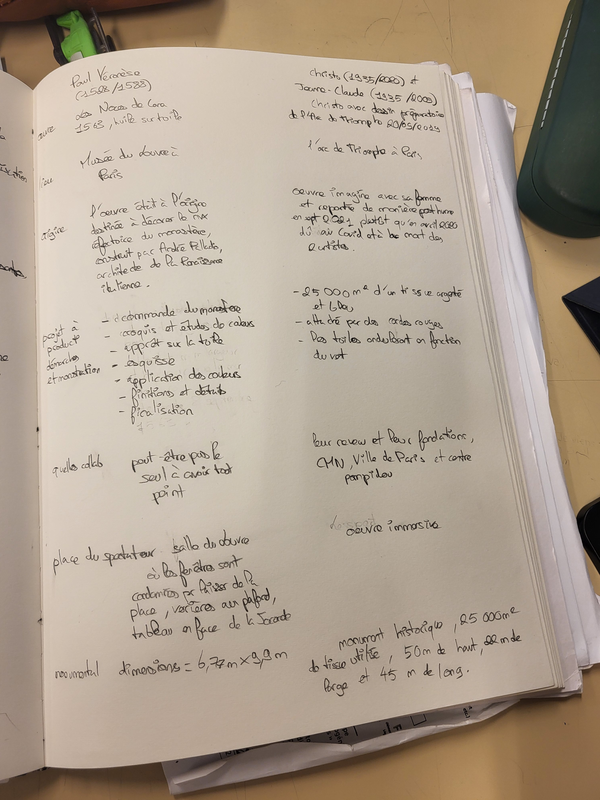 Paul Véronèse
(1528/1588)
œuvre
Les Noces de Cana
1563, huile sur toile
lieu
Musée du Louvre à
Paris
origine
l'oeuvre était à l'origine
destinée à décorer le mur
réfectoire du monastère,
construit par André Pallado,
architecte de la Renaissance
italienne.
projet à
product
démarches
et monstration
- commande du monastère
- croquis et études de couleurs
- apprêt sur la toile
- esquisse
- application des couleurs
- finitions et détails
- ficalisation
quelles collab
peut-être pas le
seul à avoir tout
peint
place du spectateur
salle du Louvre
où les fenêtres sont
condamnées pr laisser de la
place, verrières au plafond,
tableau en face de la Joconde
monumental
dimensions = 6,77m x 9,9m
Christo (1935/2020) et
Jeanne-Claude (1935/2009)
Christo avec dessin préparatoire
de l'Arc de Triomphe 20/05/2019
l'arc de Triomphe à Paris
oeuvre imaginé avec sa femme
et reportée de manière posthume
en sept 2021 plutôt qu'en avril 2020
dû au Covid et à la mort des
artistes
- 25 000 m² d'un tissue argenté
et bleu
- attaché par des cordes rouges
- Des toiles onduleront en fonction
du vent
leur neveu et leur fondations,
CMN, Ville de Paris et centre
pompidou
oeuvre immersive
monument historique, 25 000m²
de tissu utilisé, 50m de haut, 22 m de
large et 45 m de long.